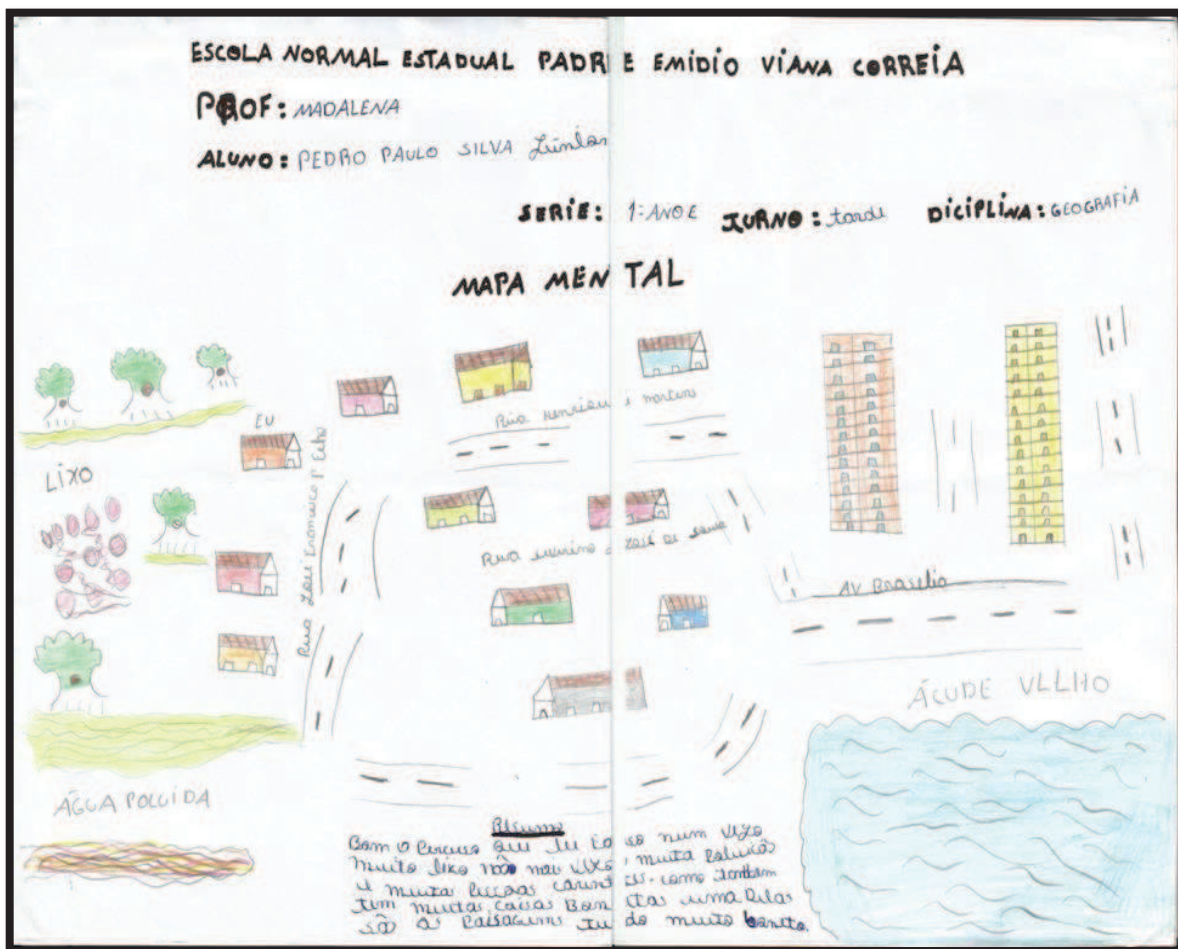 ESCOLA NORMAL ESTADUAL PADRE EMIDIO VIANA CORREIA
PROF: MADALENA
ALUNO: PEDRO PAULO SILVA
SERIE: 1º ANO E TURNO: tarde DICIPLINA: GEOGRAFIA
MAPA MENTAL
EU
Rua henrique martins
LIXO
Rua
Rua severino José de
AV Brasilia
ÁCUDE VELHO
ÁGUA POLUIDA
Resumo
Bom o Percurso que eu faço num vejo
muito lixo não mai vejo, muita Poluicão
e muita Pessoas carentes. como tambem
tem muitas casas Bonitas uma delas
são as Paisagens tudo muito bonito.